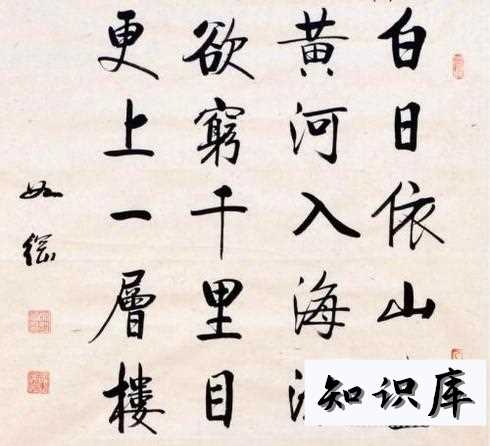 白日依山
黄河入海
欲窮千里目
更上一層樓
如
知识库